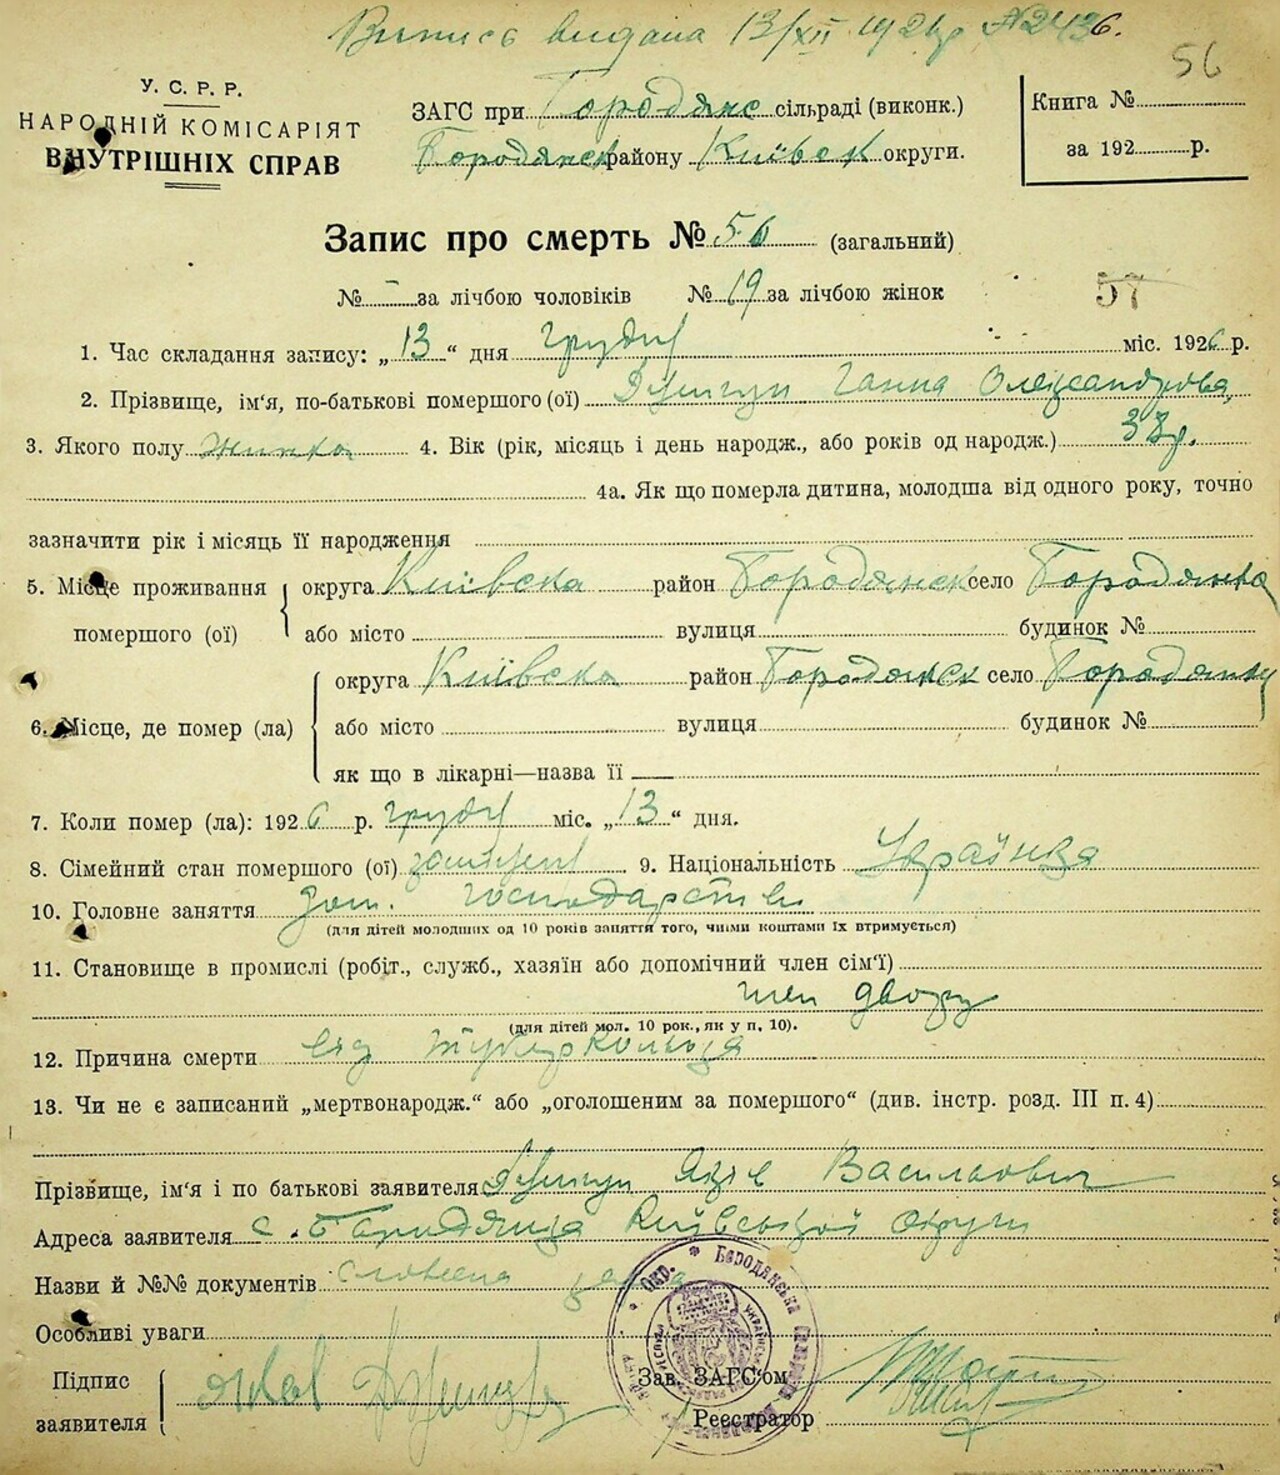 Випись видана 13/XII 1926 р №2436.
56
У. С. Р. Р.
НАРОДНІЙ КОМІСАРІЯТ
ВНУТРІШНІХ СПРАВ
ЗАГС при Бородянс сільраді (виконк.)
Бородянск району Київск округи.
Книга №
за 192 р.
Запис про смерть № 56 (загальний)
№ - за лічбою чоловіків № 19 за лічбою жінок
57
1. Час складання запису: „13“ дня грудня міс. 1926 р.
2. Прізвище, ім‘я, по-батькові помершого (ої) Ганна Олександрова,
3. Якого полу жинка 4. Вік (рік, місяць і день народж., або років од народж.) 38 р.
4а. Як що померла дитина, молодша від одного року, точно
зазначити рік і місяць її народження
5. Місце проживання помершого (ої) округа Київска район Бородянск село Бородянка
або місто вулиця будинок №
6. Місце, де помер (ла) округа Київска район Бородянск село Бородянка
або місто вулиця будинок №
як що в лікарні—назва її
7. Коли помер (ла): 1926 р. грудня міс. „13“ дня.
8. Сімейний стан помершого (ої) замужня 9. Національність Українка
10. Головне заняття господарство
(для дітей молодших од 10 років заняття того, чиїми коштами їх втримується)
11. Становище в промислі (робіт., служб., хазяїн або допомічний член сім‘ї)
член двору
(для дітей мол. 10 рок., як у п. 10).
12. Причина смерти від туберкольоза
13. Чи не є записаний „мертвонародж.“ або „оголошеним за помершого“ (див. інстр. розд. III п. 4)
Прізвище, ім‘я і по батькові заявителя Яків Васильович
Адреса заявителя с. Бородянка Київської округи
Назви й №№ документів словесна заява
Особливі уваги
Підпис заявителя Яков
Зав. ЗАГС‘ом
Реєстратор